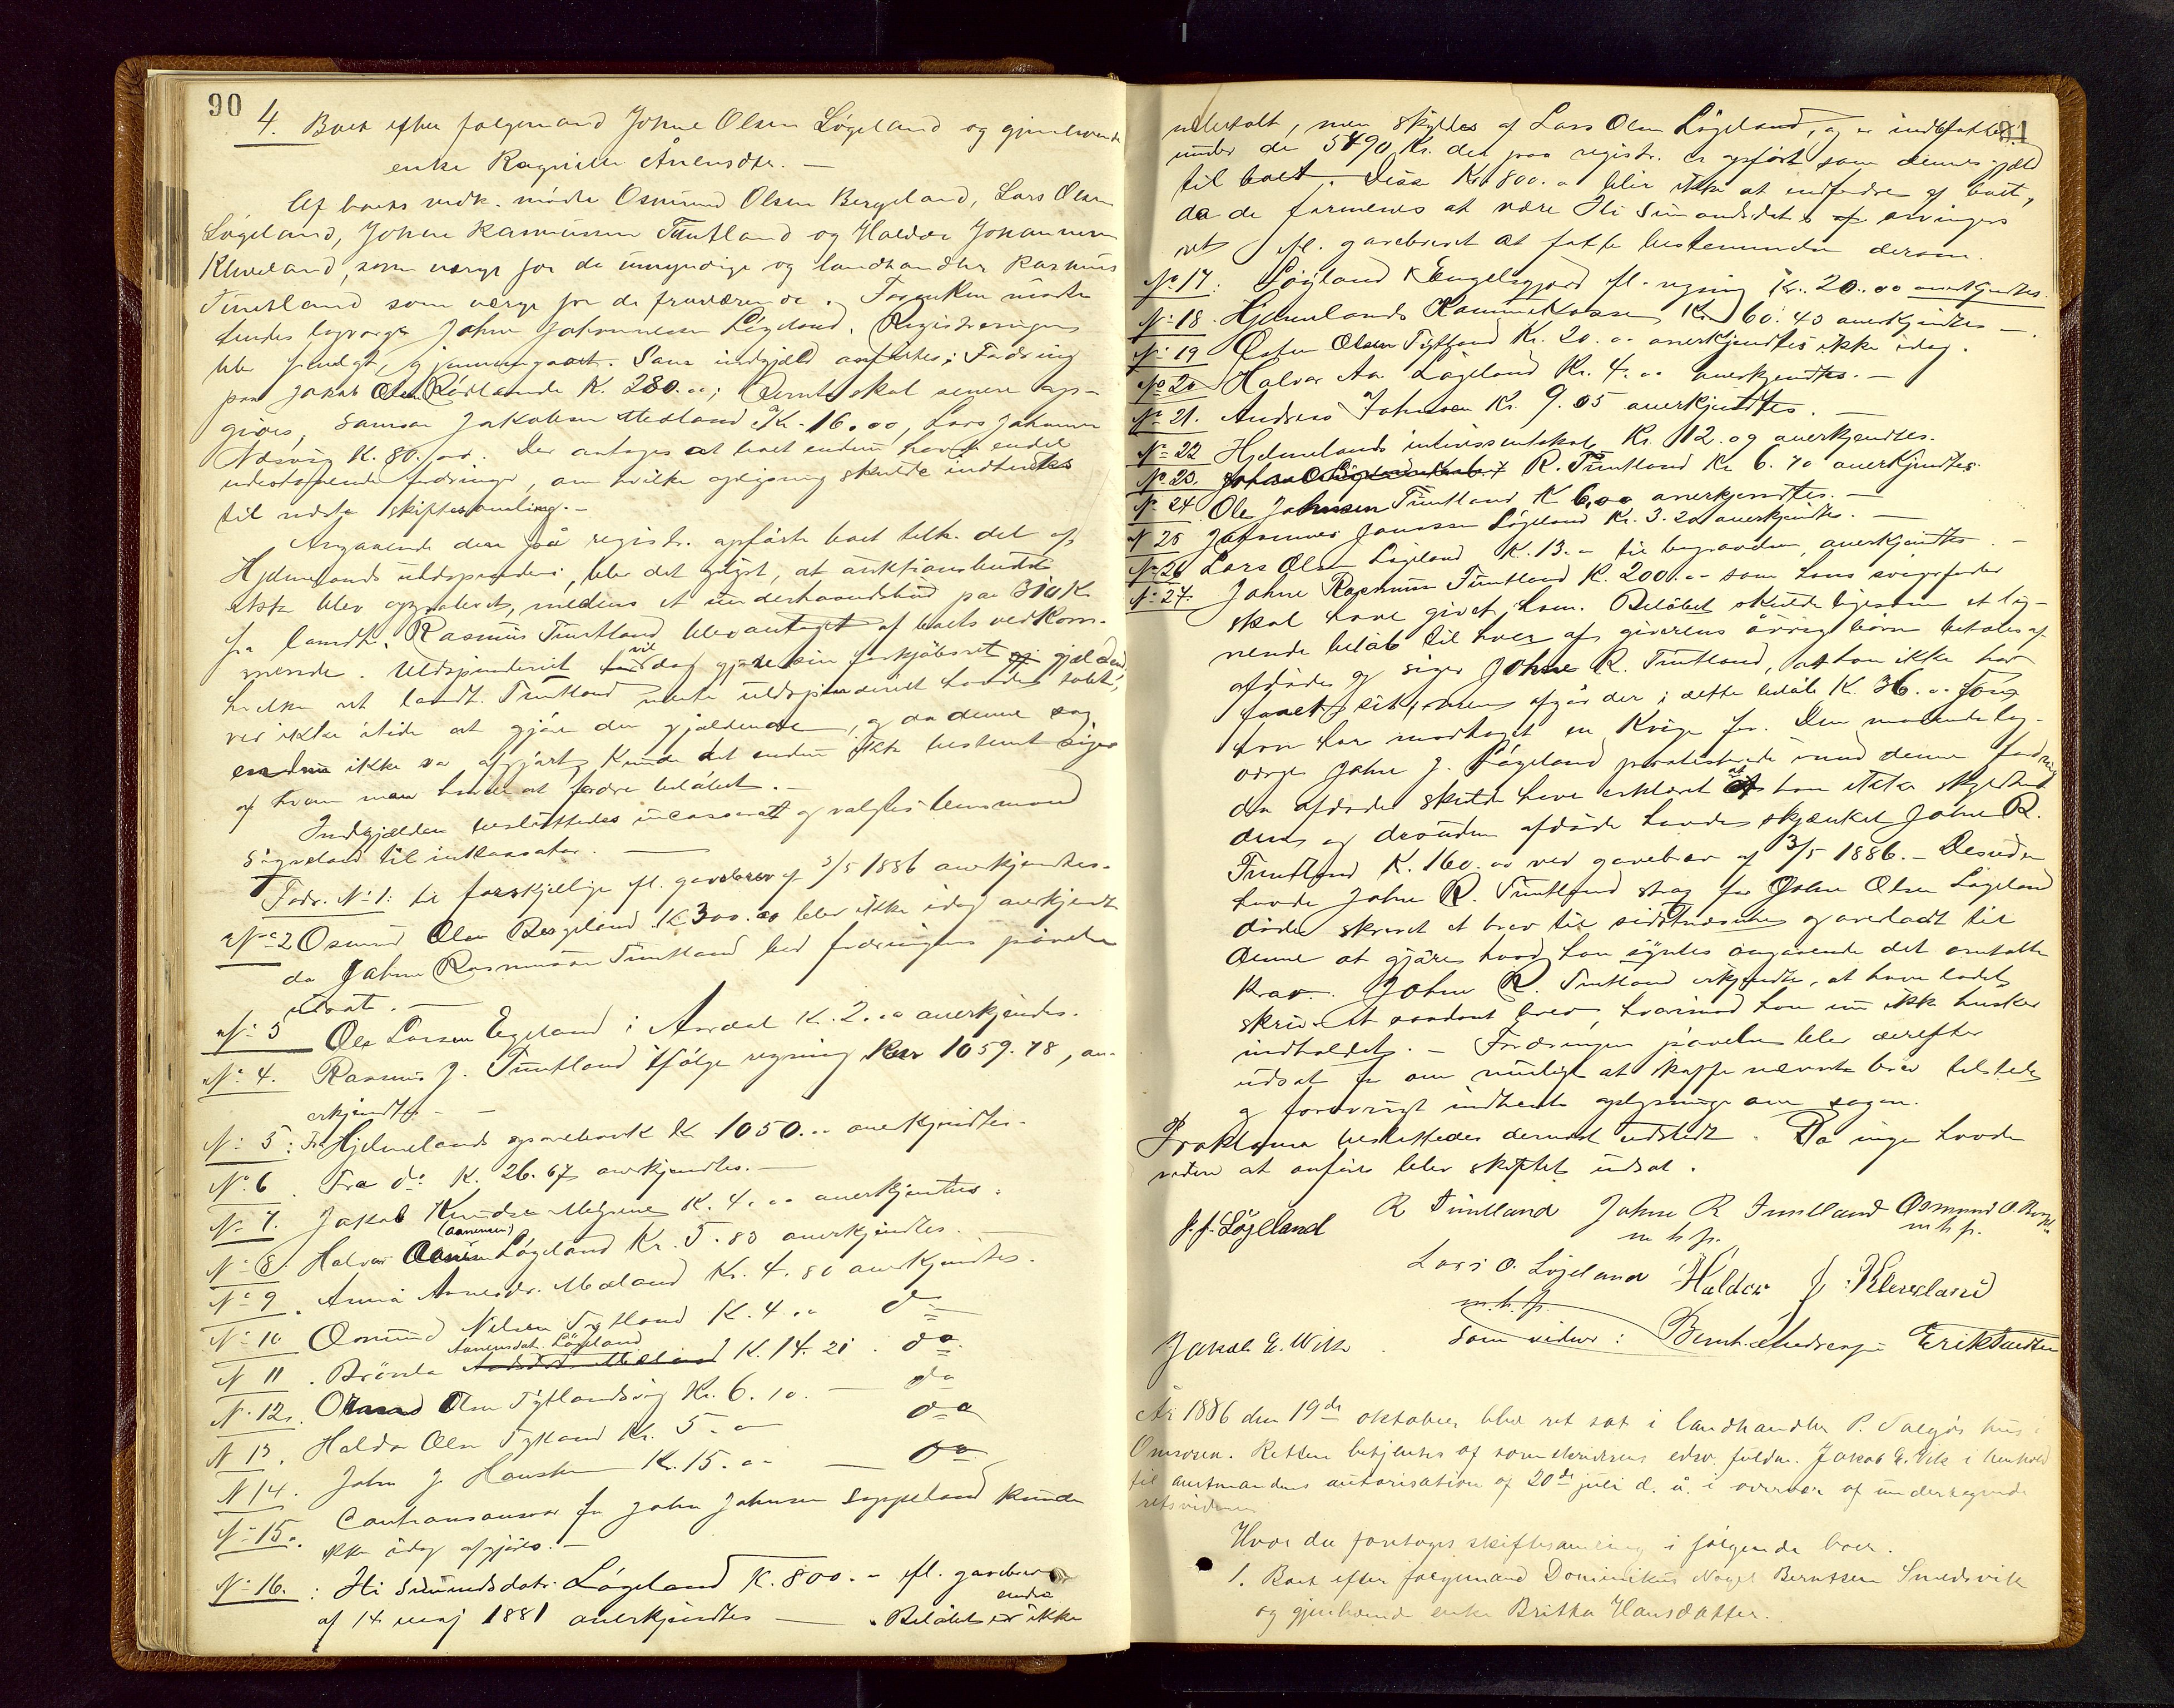 90
4. Boet efter folgemand Johne Olsen Løgeland og gjenlevende
enke Ragnille Ånensdtr. —
Af boets vedk. mødte Osmund Olsen Bergeland, Lars Olsen
Løgeland, Johne Rasmussen Tuntland og Haldor Johannesen
Kleveland, som verge for de umyndige og landhandler Rasmus
Tuntland som verge for de fraværende. For enken mødte
hendes lagverge Johne Johannesen Løgeland. Registreringen
blev fremlagt, gjennemgaaet. Som indgjæld anførtes: Fordring
paa Jakob Olsen Rødlande K. 280.00; Rente skal senere op-
gives, Samson Jakobsen Mesland K. 16.00, Lars Johannes
Næsvig K. 80.00. Der antages at boet endnu havde endel
udestaaende fordringer, om hvilke oplysning skulde indhentes
til næste skiftesamling. —
Angaaende den på registr. opførte boet tilh. del af
Hjelmelands uldspinderi, blev det oplyst, at auktionsbudet
ikke blev approberet, medens et underhaandsbud paa 310 K.
fra landh. Rasmus Tuntland blev antaget af boets vedkom-
mende. Uldspinderiet vil dog gjøre sin forkjøbsret gjældende,
hvilken ret landh. Tuntland mente uldspinderiet havde tabt,
ved ikke itide at gjøre den gjældende, og da denne sag
endnu ikke var afgjørt, kunde det endnu ikke bestemt siges
af hvem man havde at fordre beløbet. —
Indgjælden besluttedes incasseret og valgtes lensmand
Sigveland til inkassator. —
Fodr. No 1: fra forskjellige ifl. gavebrev af 3/5 1886 anerkjendtes.
No 2 Osmund Olsen Bergeland K. 300.00 blev ikke idag anerkjendt
da Johne Rasmussen Tuntland bed fordringens prøvelse
udsat. —
No 3 Ole Larsen Egeland i Aardal K. 2.00 anerkjendtes.
No 4. Rasmus J. Tuntland ifølge regning Kr 1059.78, an-
erkjendtes. —
No 5: Fra Hjelmelands sparebank K 1050.00 anerkjendtes.
No 6. Fra do K. 26.67 anerkjendtes. —
No 7. Jakob Knudsen K. 4.00 anerkjendtes.
No 8. Halvor (Aanensen) Løgeland Kr. 5.83 anerkjendtes. —
No 9. Anna Aanensdr. Mæland Kr. 4.80 anerkjendtes.
No 10 Osmund Nilsen Tytland K. 4.00 do
N 11. Brønla Aanensdat. Løgeland K. 14.21. do
N. 12. Osmund Olsen Tytlandsvig Kr. 6.10. — do
N 13. Haldor Olsen Tytland Kr. 5.00 do
N 14. John J. Hausken K. 15.00 — do
No 15. Cautionsansvar for John Johnsen Soppeland kunde
ikke idag afgjøres. —
No 16. : Hi Simundsdatr. Løgeland K. 800. — ifl. gavebrev
af 14 maj 1881 anerkjendtes — . Beløbet er endnu ikke
91
udbetalt, men skyldes af Lars Olsen Løgeland, og er indbefattet
under de 5490 Kr. det paa registr. er opført som dennes gjæld
til boet. Disse Kr 800.00 blir ikke at indfordre af boet,
da de formenes at være Hi Simondsdatrs arvingers
ret ifl. gavebrevet at fatte bestemmelse derom.
No 17: Løgland & Engelsgjerd ifl. regning Kr. 20.00 anerkjendtes.
No 18. Hjelmelands Kommunekasse Kr. 60.40 anerkjendtes —
No 19 Østen Olsen Tytland Kr. 20.00 anerkjendtes ikke idag.
No 20 Halvor Aa. Løgeland Kr. 4.00 anerkjendtes. —
No 21. Andreas Johnsen Kr. 9.05 anerkjendtes. —
No 22 Hjelmelands intressentskab Kr. 12.09 anerkjendtes.
No 23. R. Tuntland Kr 6.70 anerkjendtes.
No 24 Ole Johnsen Tuntland K 6.00 anerkjendtes. —
N 25 Johannes Jonassen Løgeland Kr. 3.20 anerkjendtes. —
No 26 Lars Olsen Løgeland K. 13.00 til begravelsen, anerkjendtes —
No 27. Johne Rasmussen Tuntland K. 200.00 som hans svigerfader
skal have givet ham. Beløbet skulde ligesom et lig-
nende beløb til hver af giverens øvrige børn betales af
afdøde og siger Johne R. Tuntland, at han ikke har
faaet sit, men afgår der i dette beløb K. 36.00 som
han har modtaget en kvige for. Den mødende lag-
verge Johne J. Løgeland protesterede imod denne fordring
da afdøde skulde have erklæret at han ikke skyldte
dens og desuden afdøde havde skjænket Johne R.
Tuntland K. 160.00 ved gavebrev af 3/5 1886. — Desuden
havde Johne R. Tuntland strax før Johne Olsen Løgeland
døde skrevet et brev til sidstnævnte og overladt til
denne at gjøre hvad han syntes angaaende det omtalte
krav. Johne R. Tuntland erkjendte, at have ladet
skrive et saadant brev, hvorimod han nu ikke husker
indholdet. — Fordringens prøvelse blev derefter
udsat for om muligt at skaffe nævnte brev tilstede
og forøvrigt indhente oplysninger om sagen.
Proklama besluttedes dernæst udstedt. Da ingen havde
videre at anføre blev skiftet udsat.
J. J. Løgeland R Tuntland Johne R Tuntland Osmund O. Bergeland
m. h. p. m. h. p.
Lars O. Løgeland Haldor J. Kleveland
m. h. p.
Jakob E. Wik. Som vidner: Bernh. Andersen Erik Knudsen
År 1886 den 19de oktober blev ret sat i landhandler P. Valgös hus i
Omsosen. Retten betjentes af sorenskriverens edsv. fuldm. Jakob E. Vik i henhold
til amtmandens autorisation af 20de juli d. å. i overvær af undertegnede
retsvidner
Hvor da foretoges skiftesamling i følgende boer.
1. Boet efter folgemand Dominikus Nagel Berntsen Smedsvik
og gjenlevende enke Britha Hansdatter.